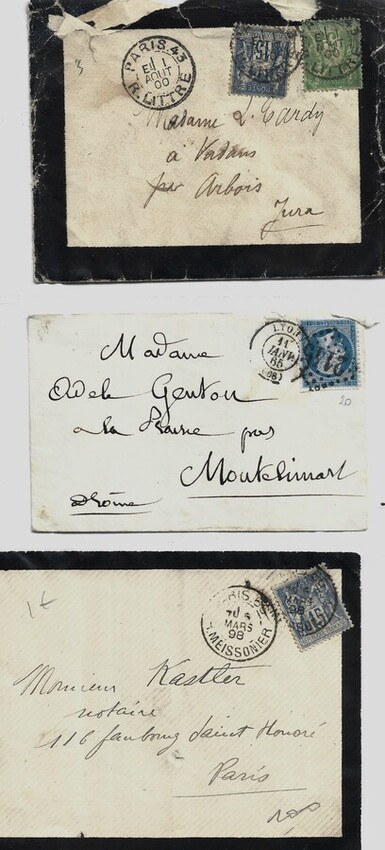 3
PARIS.43
E1
AOUT
00
R. LITTRÉ
15
Madame L. Cardy
à Vadans
par Arbois
Jura
LYON
11
JANV.
65
(68)
Madame
Adele Genton
à la Baume près
Montelimart
Drôme
20
1 t
PARIS
MARS
98
R. MEISSONIER
15
Monsieur Kastler
notaire
116 faubourg Saint Honoré
Paris